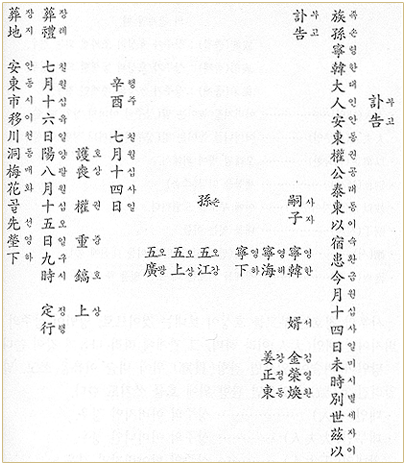 訃告
부고
族孫寧韓大人安東權公泰東以宿患今月十四日未時別世玆以
족손령한대인안동권공태동이숙환금월십사일미시별세자이
訃告
부고
嗣子 寧韓 婿 金榮煥
사자 영한 서 김영환
寧海 姜正東
영해 강정동
寧下
영하
孫 五江
손 오강
五上
오상
五廣
오광
辛酉 七月十四日
신유 칠월십사일
護喪 權重鎬 上
호상 권중호 상
葬禮 七月十六日陽八月十五日九時 定行
장례 칠월십육일양팔월십오일구시 정행
葬地 安東市移川洞梅花골先塋下
장지 안동시이천동매화선영하